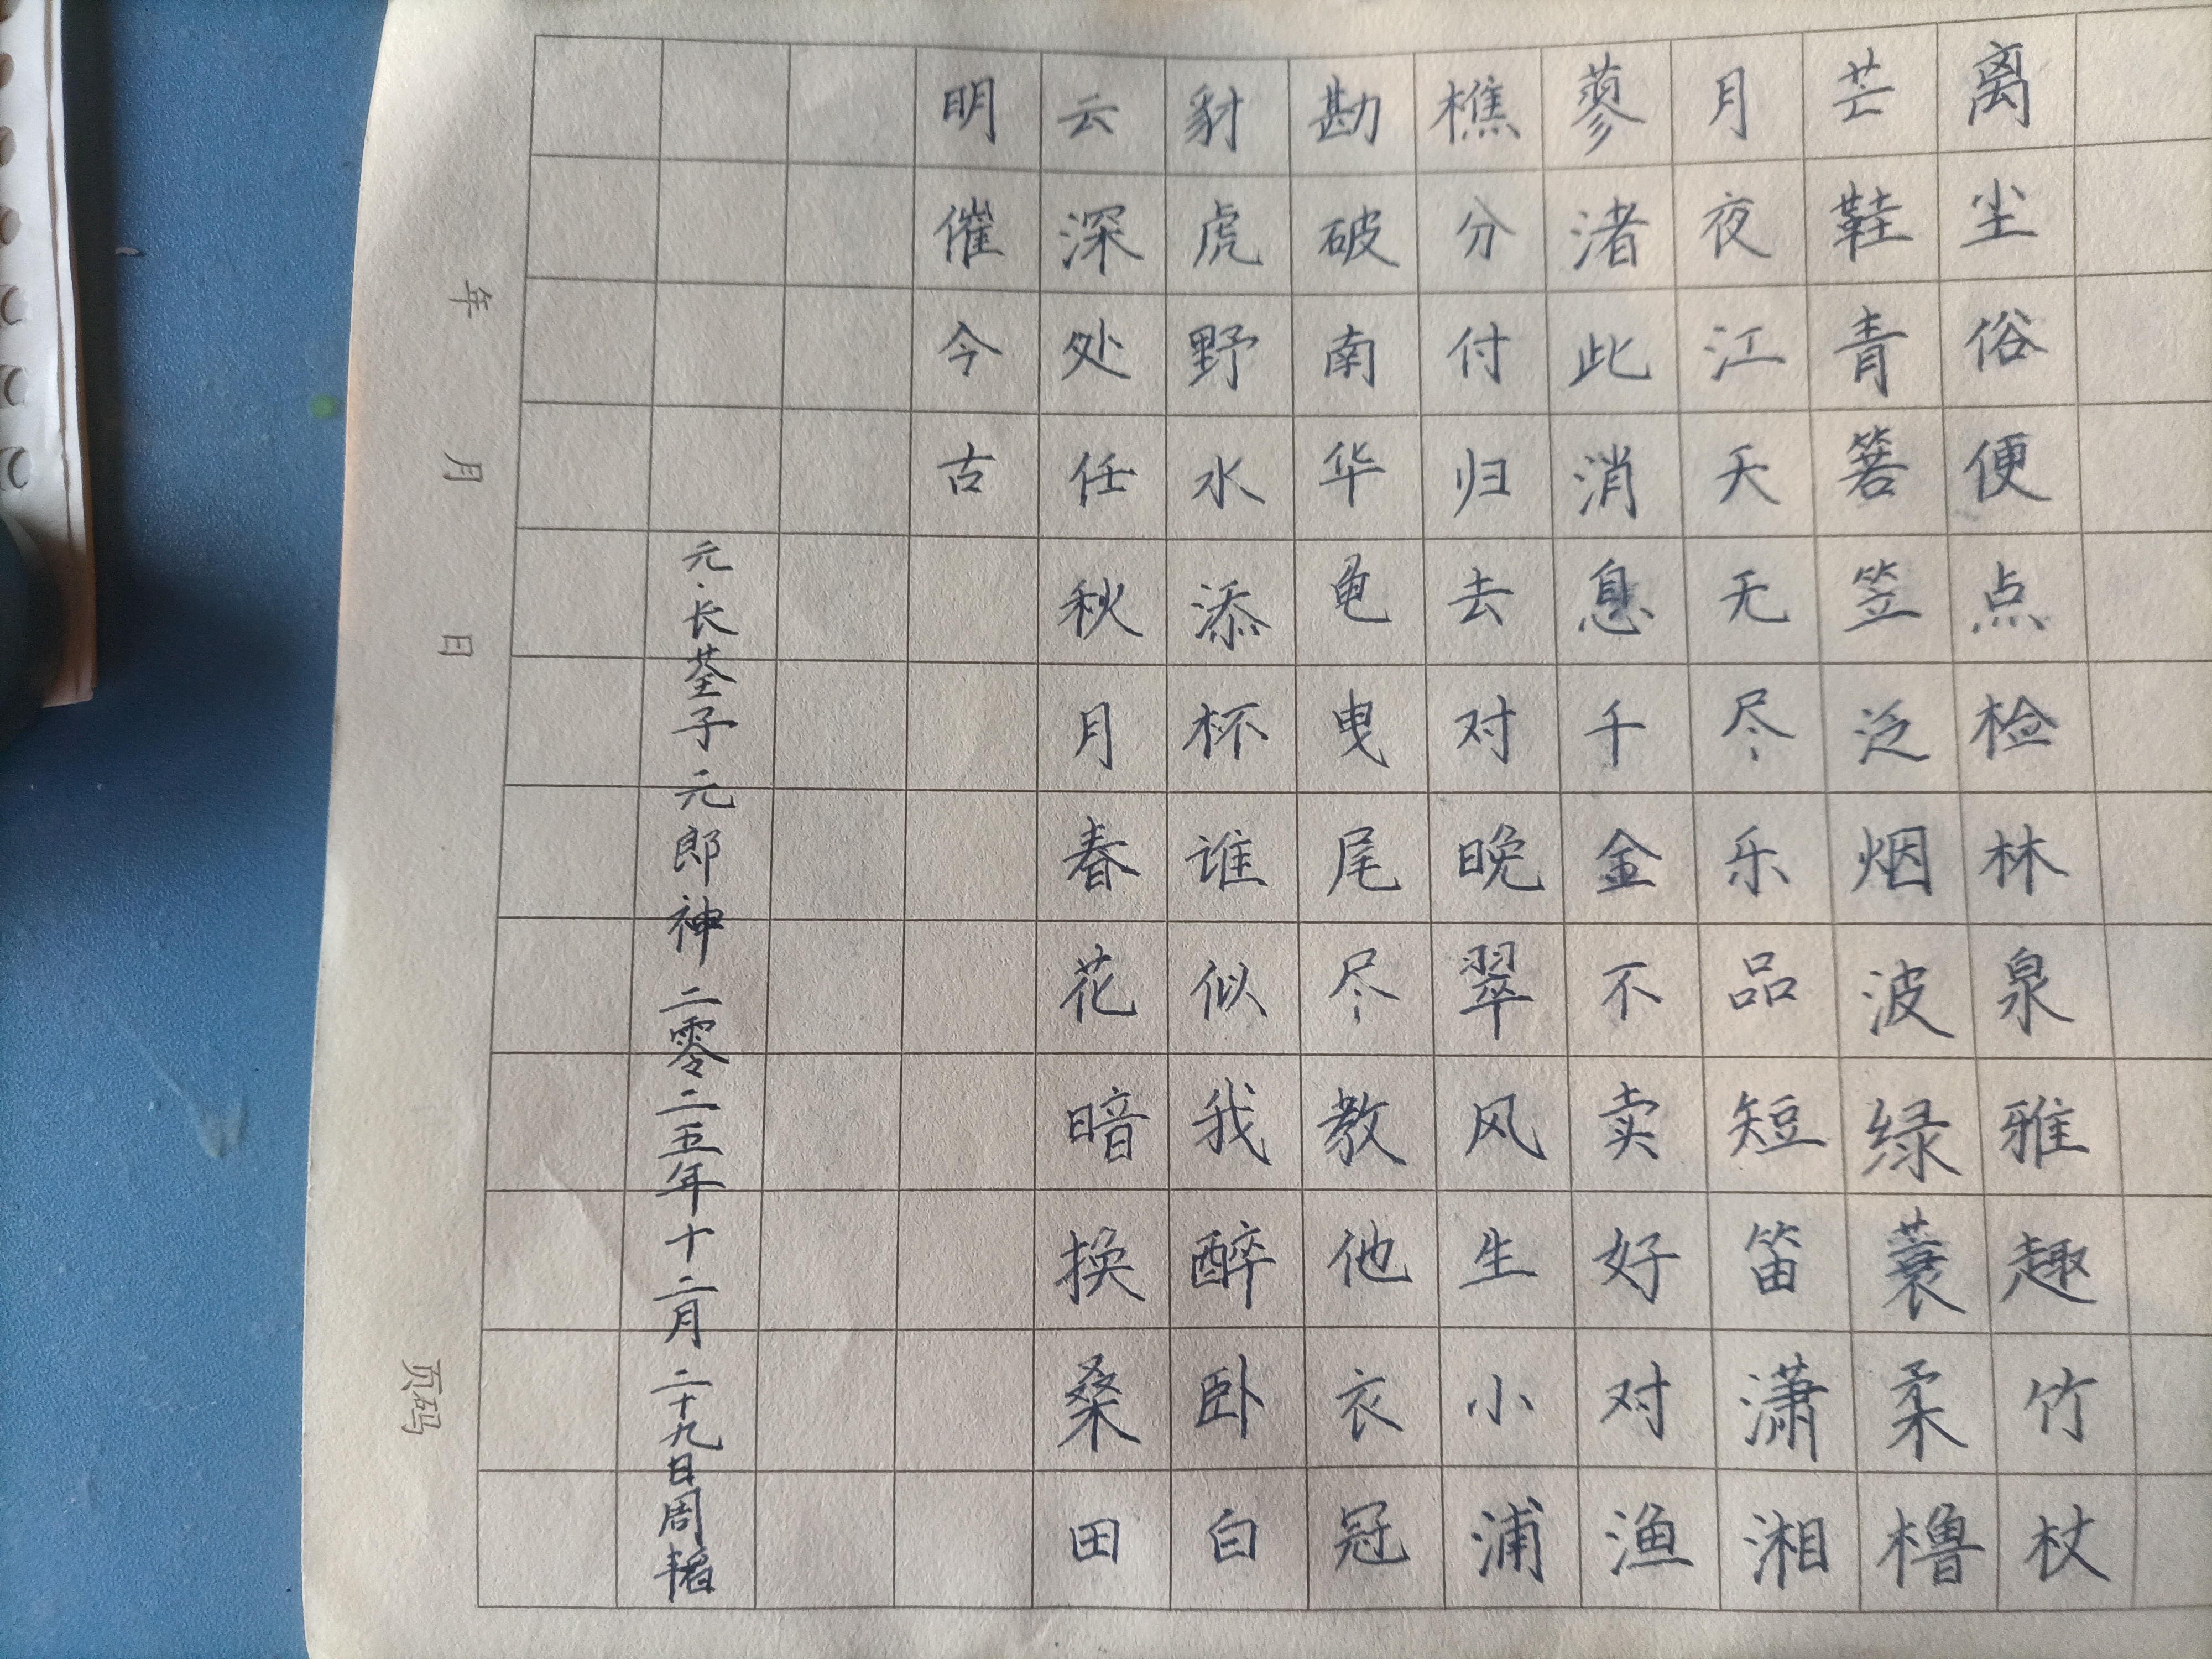 离尘俗便点检林泉雅趣竹杖
芒鞋青箬笠泛烟波绿蓑柔橹
月夜江天无尽乐品短笛潇湘
蓼渚此消息千金不卖好对渔
樵分付归去对晚翠风生小浦
勘破南华龟曳尾尽教他衣冠
豺虎野水添杯谁似我醉卧白
云深处任秋月春花暗换桑田
明催今古
元·长荃子 元郎神 二零二五年十二月二十九日周
年 月 日 页码